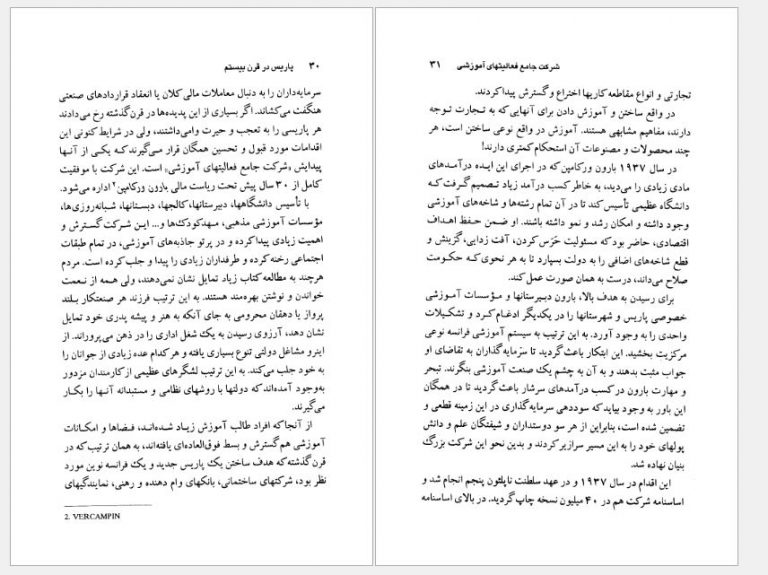 ۳۰ پاریس در قرن بیستم
سرمایه‌داران را به دنبال معاملات مالی کلان یا انعقاد قراردادهای صنعتی
هنگفت می‌کشاند. اگر بسیاری از این پدیده‌ها در قرن گذشته رخ می‌دادند
هر پاریسی را به تعجب و حیرت وامی‌داشتند، ولی در شرایط کنونی این
اقدامات مورد قبول و تحسین همگان قرار می‌گیرند که یکی از آنها
پیدایش «شرکت جامع فعالیتهای آموزشی» است. این شرکت با موفقیت
کامل از ۳۰ سال پیش تحت ریاست مالی بارون ورکامپن۲ اداره می‌شود.
با تأسیس دانشگاهها، دبیرستانها، کالجها، دبستانها، شبانه‌روزی‌ها،
مؤسسات آموزشی مذهبی، مهدکودک‌ها و... این شرکت گسترش و
اهمیت زیادی پیدا کرده و در پرتو جاذبه‌های آموزشی، در تمام طبقات
اجتماعی رخنه کرده و طرفداران زیادی را پیدا و جلب کرده است. مردم
هرچند به مطالعه کتاب زیاد تمایل نشان نمی‌دهند، ولی همه از نعمت
خواندن و نوشتن بهره‌مند هستند. به این ترتیب فرزند هر صنعتکار بلند
پرواز یا دهقان محرومی به جای آنکه به هنر و پیشه پدری خود تمایل
نشان دهد، آرزوی رسیدن به یک شغل اداری را در ذهن می‌پروراند. از
اینرو مشاغل دولتی تنوع بسیاری یافته و هر کدام عده زیادی از جوانان را
به خود جلب می‌کند. به این ترتیب لشگرهای عظیمی از کارمندان مزدور
به‌وجود آمده‌اند که دولتها با روشهای نظامی و مستبدانه آنها را بکار
می‌گیرند.
از آنجا که افراد طالب آموزش زیاد شده‌اند، فضاها و امکانات
آموزشی هم گسترش و بسط فوق‌العاده‌ای یافته‌اند، به همان ترتیب که در
قرن گذشته که هدف ساختن یک پاریس جدید و یک فرانسه نوین مورد
نظر بود، شرکتهای ساختمانی، بانکهای وام دهنده و رهنی، نمایندگیهای
2. VERCAMPIN
شرکت جامع فعالیتهای آموزشی ۳۱
تجارتی و انواع مقاطعه کاریها اختراع و گسترش پیدا کردند.
در واقع ساختن و آموزش دادن برای آنهایی که به تجارت توجه
دارند، مفاهیم مشابهی هستند. آموزش در واقع نوعی ساختن است، هر
چند محصولات و مصنوعات آن استحکام کمتری دارند!
در سال ۱۹۳۷ بارون ورکامپن که در اجرای این ایده درآمدهای
مادی زیادی را می‌دید، به خاطر کسب درآمد زیاد تصمیم گرفت که
دانشگاه عظیمی تأسیس کند تا در آن تمام رشته‌ها و شاخه‌های آموزشی
وجود داشته و امکان رشد و نمو داشته باشند. او ضمن حفظ اهداف
اقتصادی، حاضر بود که مسئولیت حَرَس کردن، آفت زدایی، گزینش و
قطع شاخه‌های اضافی را به دولت بسپارد تا به هر نحوی که حکومت
صلاح می‌داند، درست به همان صورت عمل کند.
برای رسیدن به هدف بالا، بارون دبیرستانها و مؤسسات آموزشی
خصوصی پاریس و شهرستانها را در یکدیگر ادغام کرد و تشکیلات
واحدی را به وجود آورد. به این ترتیب به سیستم آموزشی فرانسه نوعی
مرکزیت بخشید. این ابتکار باعث گردید تا سرمایه‌گذاران به تقاضای او
جواب مثبت بدهند و به آن به چشم یک صنعت آموزشی بنگرند. تبحر
و مهارت بارون در کسب درآمدهای سرشار باعث گردید تا در همگان
این باور به وجود بیاید که سوددهی سرمایه‌گذاری در این زمینه قطعی و
تضمین شده است، بنابراین از هر سو دوستداران و شیفتگان علم و دانش
پولهای خود را به این مسیر سرازیر کردند و بدین نحو این شرکت بزرگ
بنیان نهاده شد.
این اقدام در سال ۱۹۳۷ و در عهد سلطنت ناپلئون پنجم انجام شد و
اساسنامه شرکت هم در ۴۰ میلیون نسخه چاپ گردید. در بالای اساسنامه